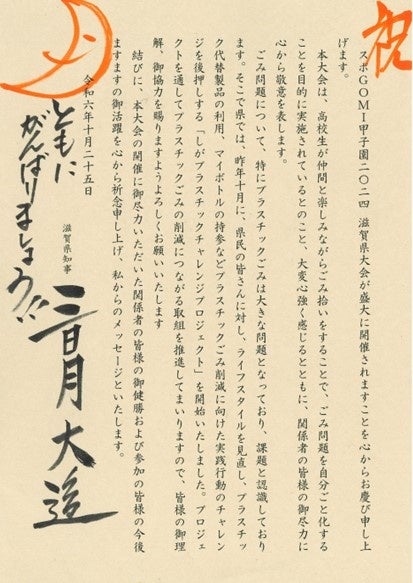 祝
スポGOMI甲子園二〇二四 滋賀県大会が盛大に開催されますことを心からお慶び申し上
げます。
本大会は、高校生が仲間と楽しみながらごみ拾いをすることで、ごみ問題を自分ごと化する
ことを目的に実施されているとのこと、大変心強く感じるとともに、関係者の皆様の御尽力に
心から敬意を表します。
ごみ問題について、特にプラスチックごみは大きな問題となっており、課題と認識しており
ます。そこで県では、昨年十月に、県民の皆さんに対し、ライフスタイルを見直し、プラスチッ
ク代替製品の利用、マイボトルの持参などプラスチックごみ削減に向けた実践行動のチャレン
ジを後押しする「しがプラスチックチャレンジプロジェクト」を開始いたしました。プロジェ
クトを通してプラスチックごみの削減につながる取組を推進してまいりますので、皆様の御理
解、御協力を賜りますようよろしくお願いいたします
結びに、本大会の開催に御尽力いただいた関係者の皆様の御健勝および参加の皆様の今後
ますますの御活躍を心から祈念申し上げ、私からのメッセージといたします。
令和六年十月二十五日
ともに
がんばりましょう!!
滋賀県知事 三日月大造